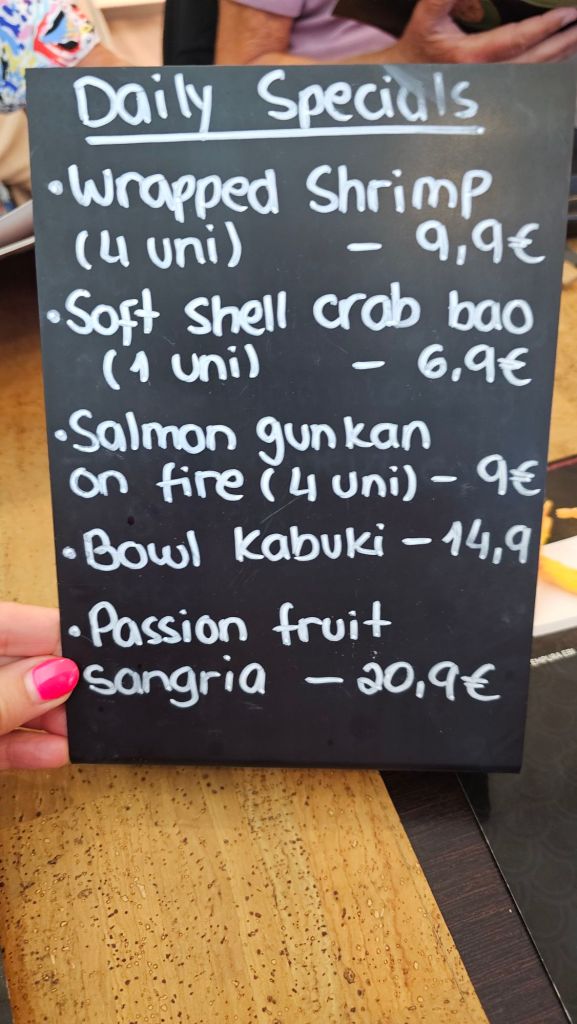 Daily Specials
• Wrapped Shrimp
(4 uni) – 9,9€
• Soft shell crab bao
(1 uni) – 6,9€
• Salmon gunkan
on fire (4 uni) – 9€
• Bowl Kabuki – 14,9
• Passion fruit
sangria – 20,9€
EMPURA EBI